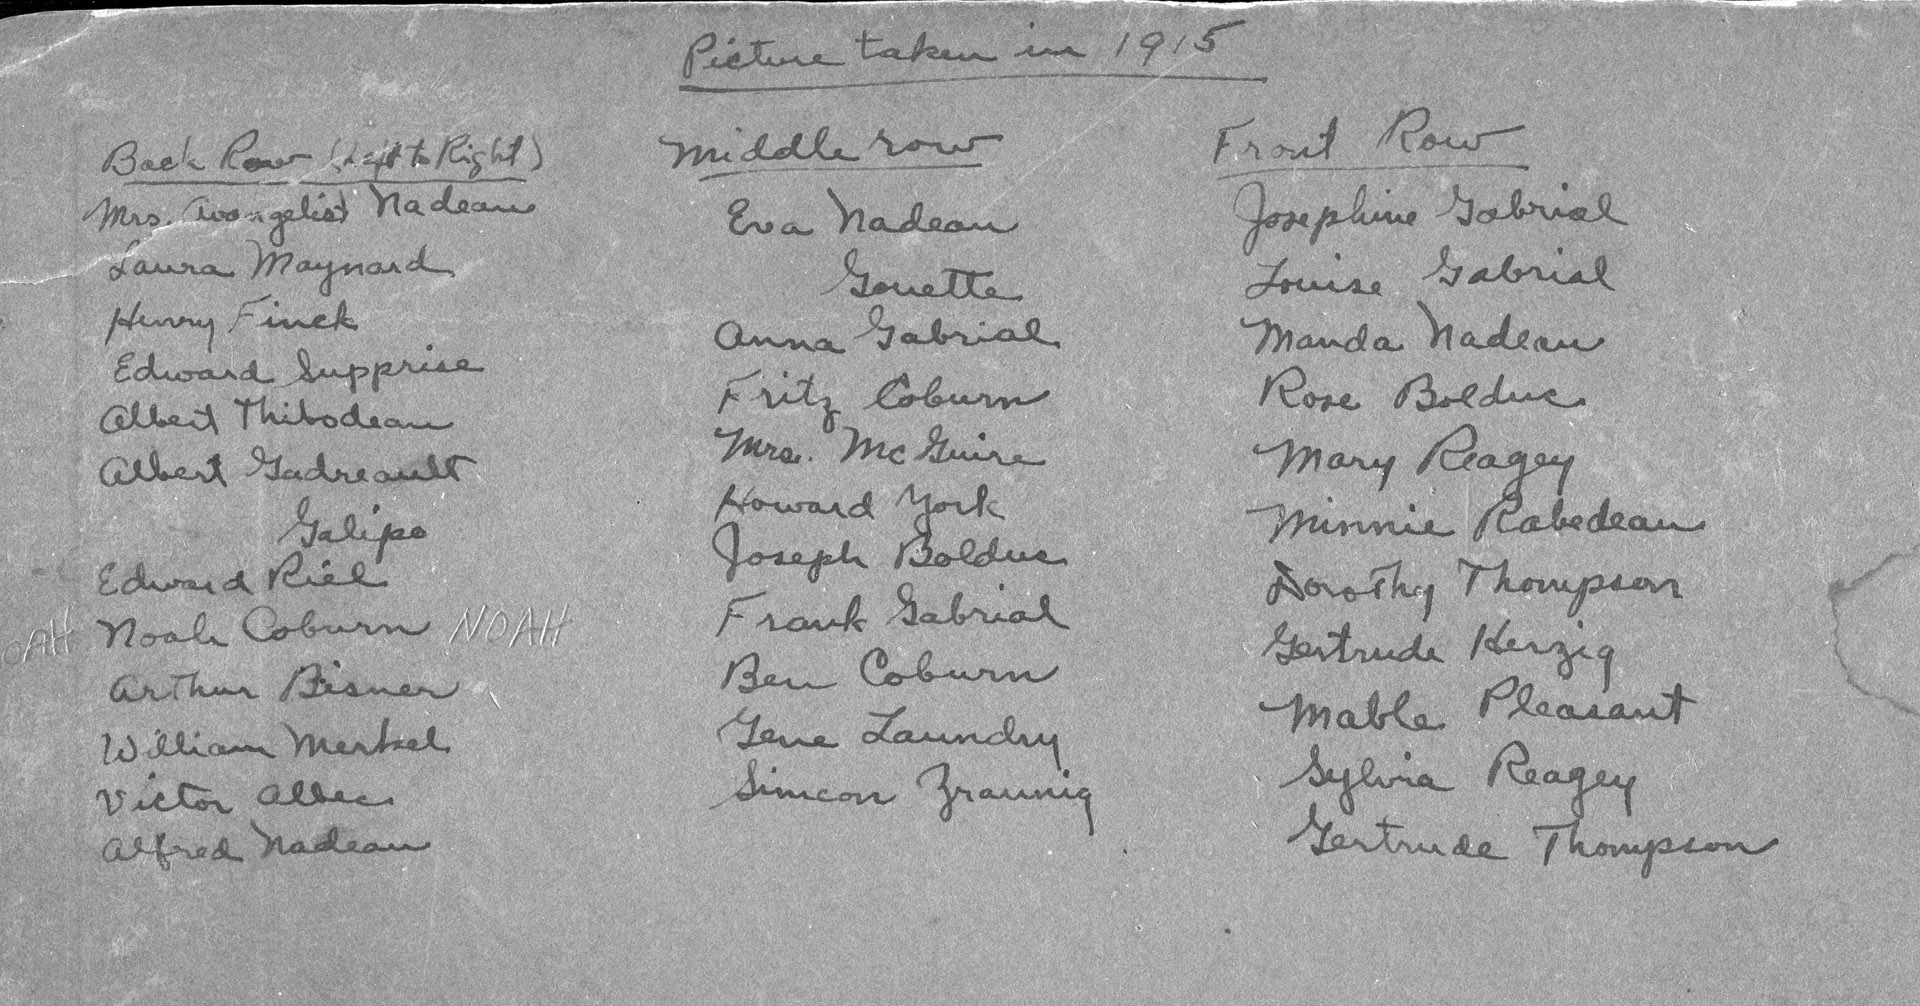 Picture taken in 1915
Back Row (Left to Right)
Mrs. Avangelist Nadeau
Laura Maynard
Henry Finck
Edward Supprise
Albert Thibodeau
Albert Gadreault
Galipo
Edward Riel
OAH Noah Coburn NOAH
Arthur Bisner
William Merkel
Victor Albec
Alfred Nadeau
Middle row
Eva Nadeau
Gouette
Anna Gabrial
Fritz Coburn
Mrs. McGuire
Howard York
Joseph Bolduc
Frank Gabrial
Ben Coburn
Gene Laundry
Simeon Zraunig
Front Row
Josephine Gabrial
Louise Gabrial
Manda Nadeau
Rose Bolduc
Mary Reagey
Minnie Rabedeau
Dorothy Thompson
Gertrude Herzig
Mable Pleasant
Sylvia Reagey
Gertrude Thompson